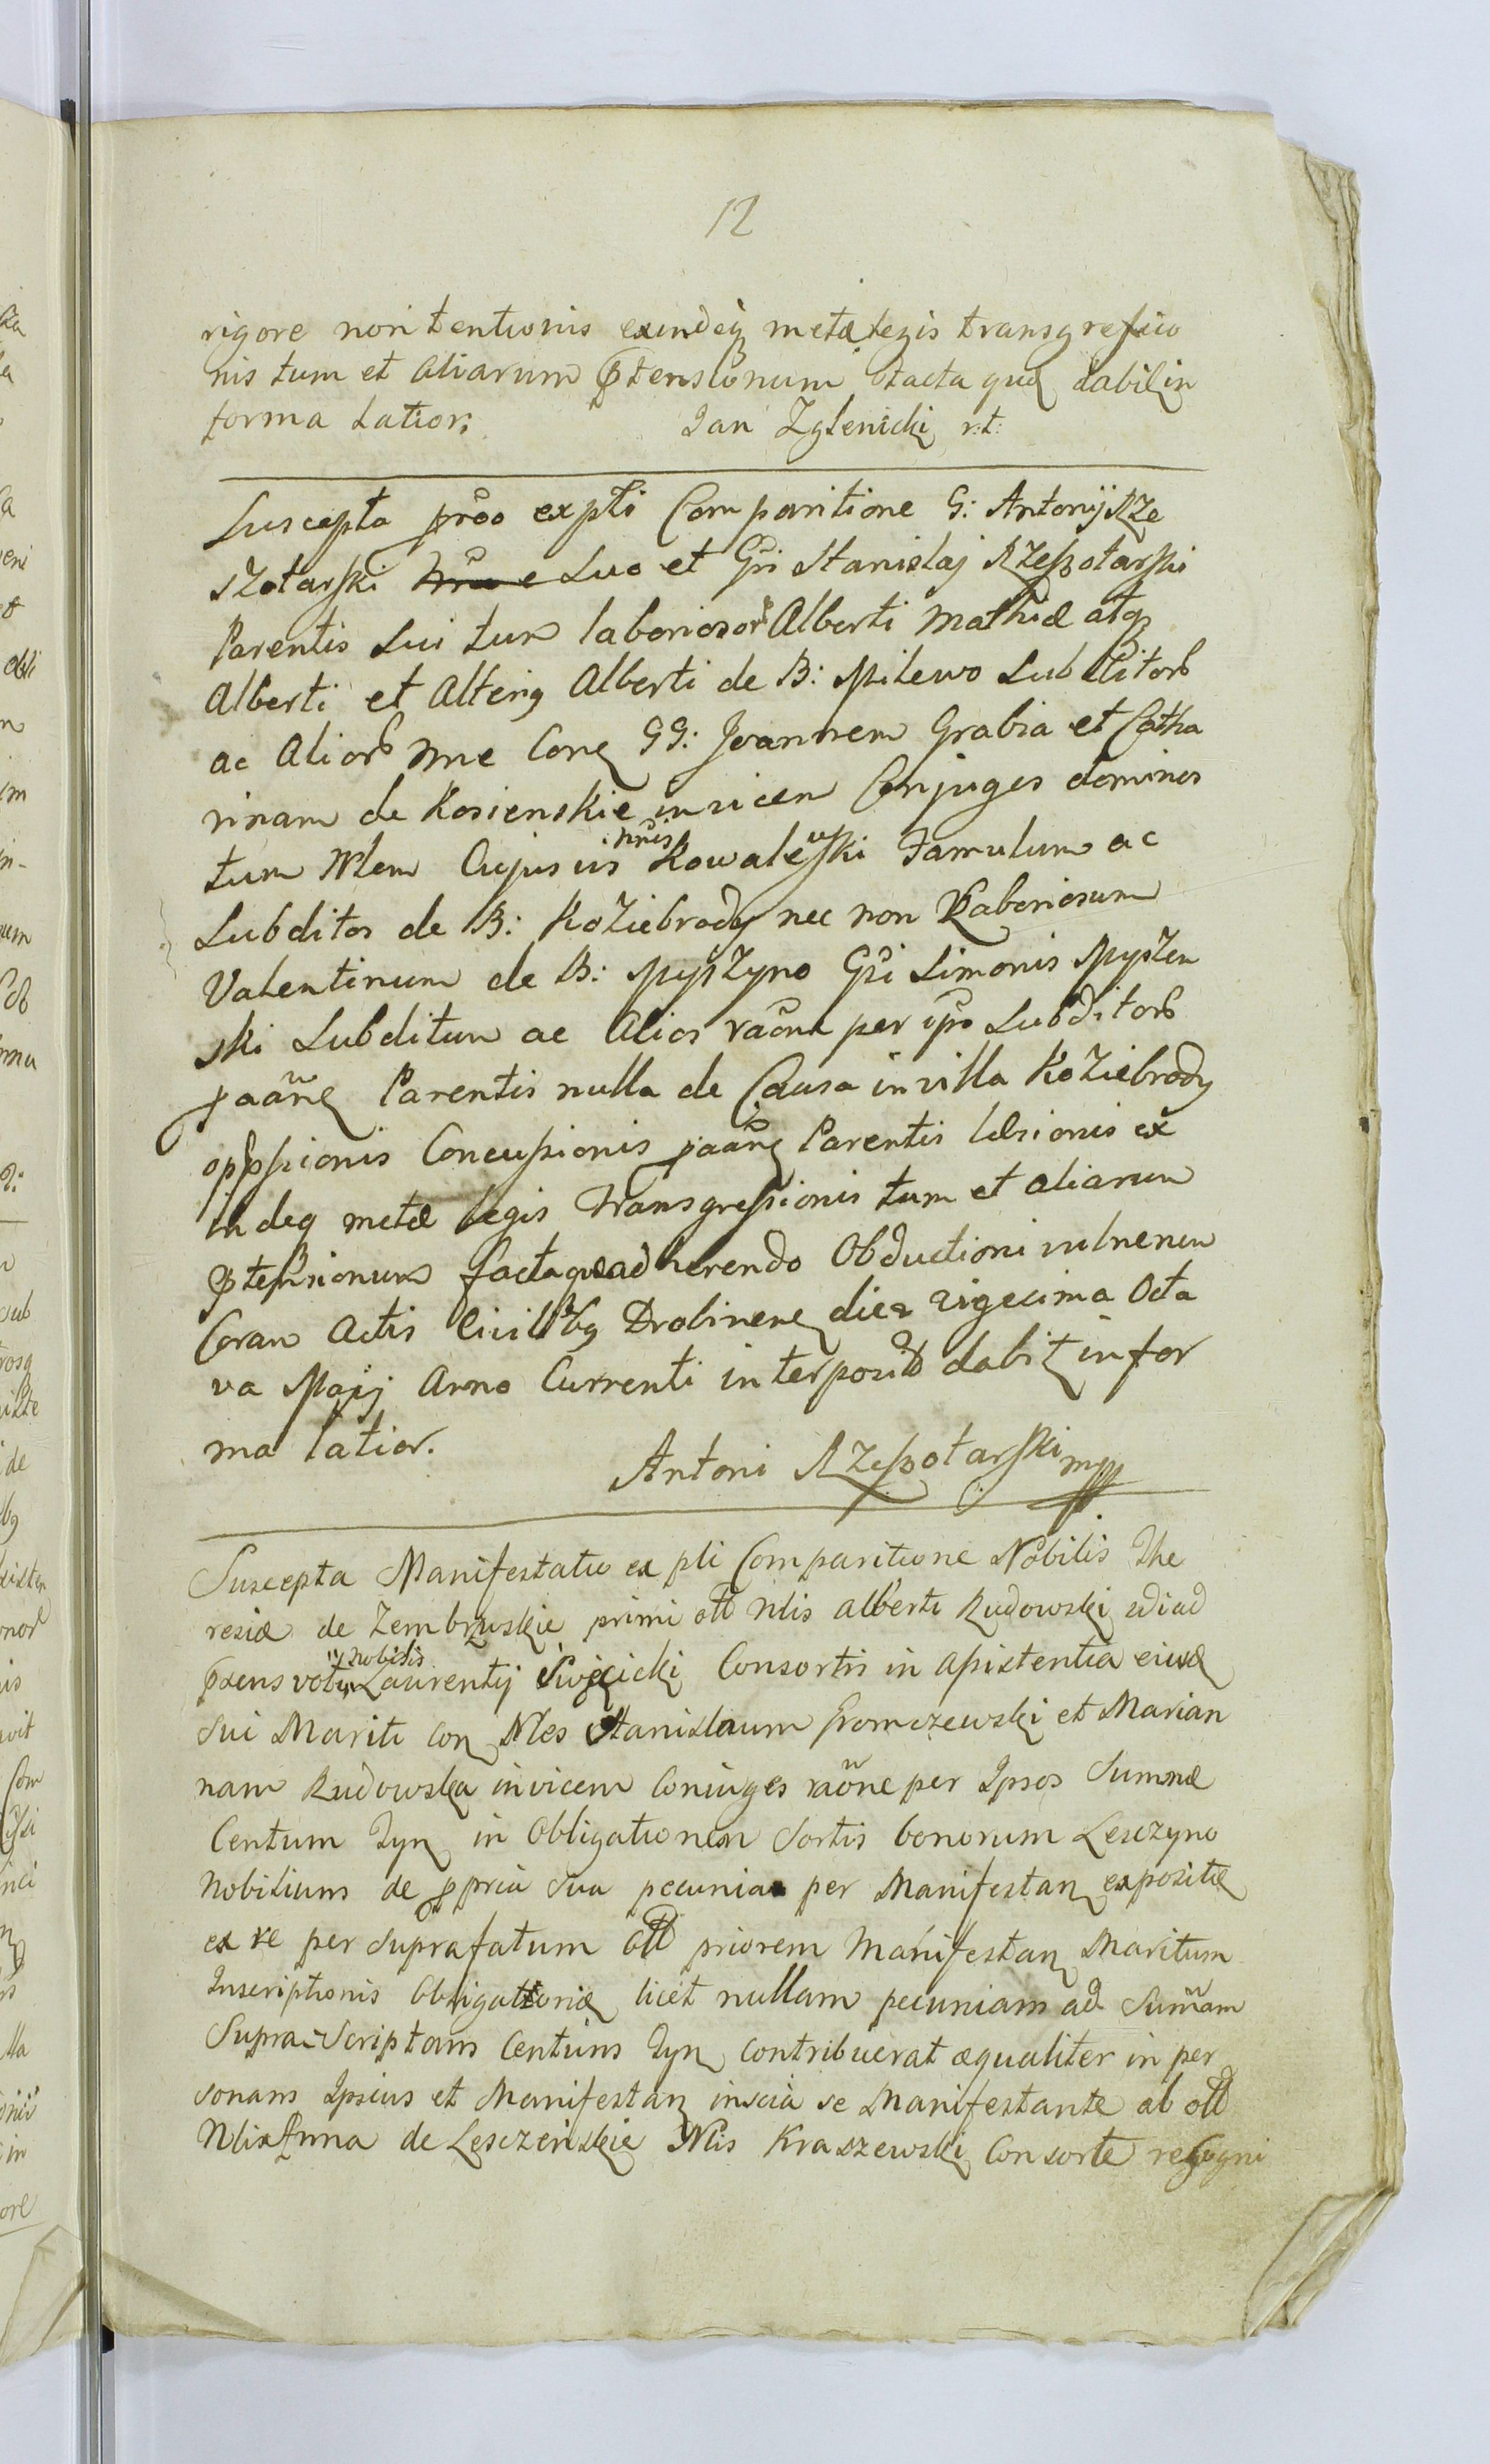 12
rigore non tentionis exindeq metæ legis transgressio
nis tum et aliarum ptensionum facta quæ dabit in
forma latior. Jan Zglenicki r.t.
Suscepta prõo expti Comparitione G: Antonij Rze
szotarski suo et Gsi Stanislaj Rzeszotarski
Parentis sui tum laboriosor Alberti Mathiæ atq
Alberti et Alterig Alberti de B: Milewo Subditorb
ac aliorb nne Conq GG: Joannem Grabia et Catha
rinam de Kosienskie invicem Conjuges dominos
tum Nlem Cujusvis nnis Kowalewski Famulum ac
Subditos de B: Koziebrody nec non Laboriosum
Valentinum de B: Myszyno Gsi Simonis Myszen
ski Subditum ac Alios raõne per ipõ Subditorb
paãnę Parentis nulla de Causa in villa Koziebrody
oppssionis Concussionis paãnę Parentis læsionis ex
in deq metæ legis transgressionis tum et aliarum
ptensionum facta quæ adhærendo Obductioni vulnerum
Coram Actis Civilibg Drobinenę die vigesima Octa
va Maij Anno Currenti interposit dabit in for
ma latior.
Antoni Rzeszotarski mpp
Suscepta Manifestatio ex pli Comparitione Nobilis The
resiæ de Zembrzuskie primi ott Nlis Alberti Rudowski adiad
præens voti Nobilis Laurentij Swięcicki Consortis in assistentia eiusd
sui Mariti Con Nles Stanislaum Gromczewski et Marian
nam Rudowska invicem Coniuges raõne per Ipsos Summæ
Centum Tyn in Obligationem Sortis bonorum Lesczyno
Nobilium de ppria sua pecunia per Manifestan expositæ
ex re per suprafatum ott priorem Manifestan Maritum
Inscriptionis Obligatoriæ licet nullam pecuniam ad Sumãm
Supra-Scriptam Centum Tyn contribuerat æqualiter in per
sonam Ipsius et Manifestan inscia se Manifestante ab ott
Nlis Anna de Lesczenskie Nlis Kraszewski Consorte recogni